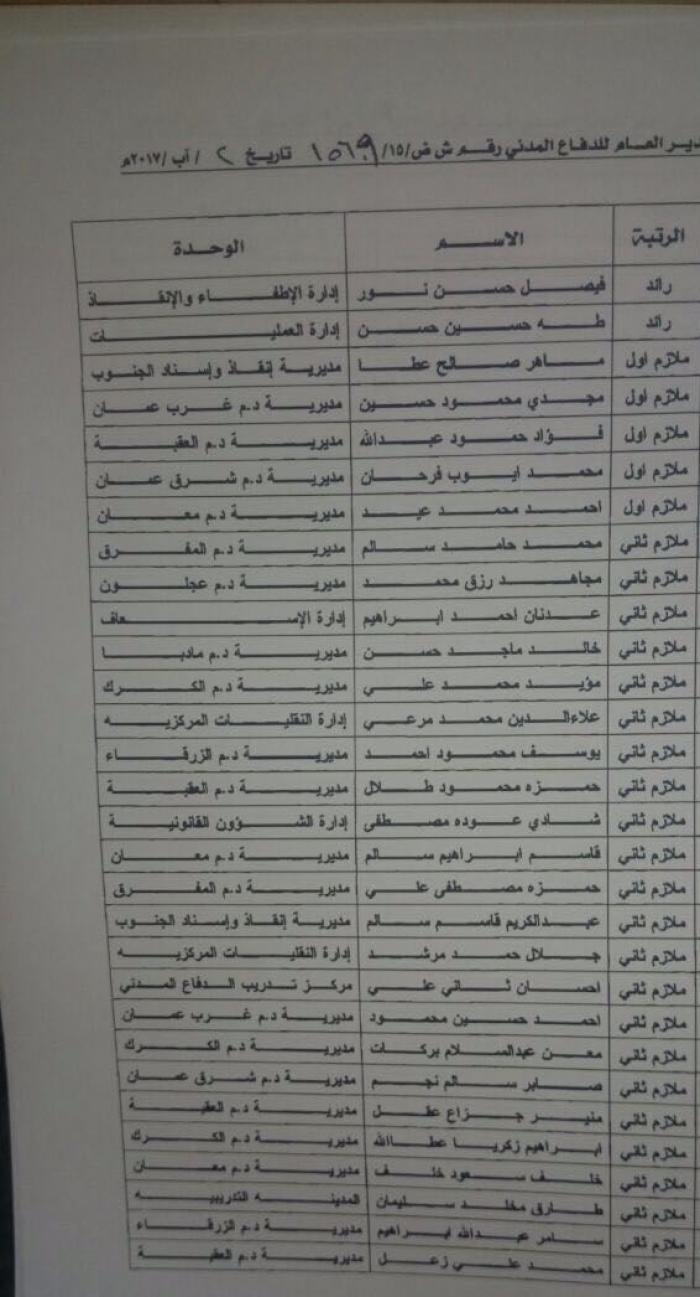 دير العام للدفاع المدني رقم ش ض/١٥/ ١٥٦٩ تاريخ ٢ / آب /٢٠١٧م
الرتبة الاسم الوحدة
رائد فيصل حسن نور إدارة الإطفاء والإنقاذ
رائد طه حسين حسن إدارة العمليات
ملازم اول ماهر صالح عطا مديرية إنقاذ وإسناد الجنوب
ملازم اول مجدي محمود حسين مديرية د.م غرب عمان
ملازم اول فؤاد حمود عبدالله مديرية د.م العقبة
ملازم اول محمد ايوب فرحان مديرية د.م شرق عمان
ملازم اول احمد محمد عيد مديرية د.م معان
ملازم ثاني محمد حامد سالم مديرية د.م المفرق
ملازم ثاني مجاهد رزق محمد مديرية د.م عجلون
ملازم ثاني عدنان احمد ابراهيم إدارة الإسعاف
ملازم ثاني خالد ماجد حسن مديرية د.م مادبا
ملازم ثاني مؤيد محمد علي مديرية د.م الكرك
ملازم ثاني علاءالدين محمد مرعي إدارة النقليات المركزيه
ملازم ثاني يوسف محمود احمد مديرية د.م الزرقاء
ملازم ثاني حمزه محمود طلال مديرية د.م العقبة
ملازم ثاني شادي عوده مصطفى إدارة الشؤون القانونية
ملازم ثاني قاسم ابراهيم سالم مديرية د.م معان
ملازم ثاني حمزه مصطفى علي مديرية د.م المفرق
ملازم ثاني عبدالكريم قاسم سالم مديرية إنقاذ وإسناد الجنوب
ملازم ثاني جلال حمد مرشد إدارة النقليات المركزيه
ملازم ثاني احسان ثاني علي مركز تدريب الدفاع المدني
ملازم ثاني احمد حسين محمود مديرية د.م غرب عمان
ملازم ثاني معن عبدالسلام بركات مديرية د.م الكرك
ملازم ثاني صابر سالم نجم مديرية د.م شرق عمان
ملازم ثاني منير جزاع عطل مديرية د.م العقبة
ملازم ثاني ابراهيم زكريا عطاالله مديرية د.م الكرك
ملازم ثاني خلف سعود خلف مديرية د.م معان
ملازم ثاني طارق مخلد سليمان المدينه التدريبيه
ملازم ثاني سامر عبدالله ابراهيم مديرية د.م الزرقاء
ملازم ثاني محمد علي زعل مديرية د.م العقبة